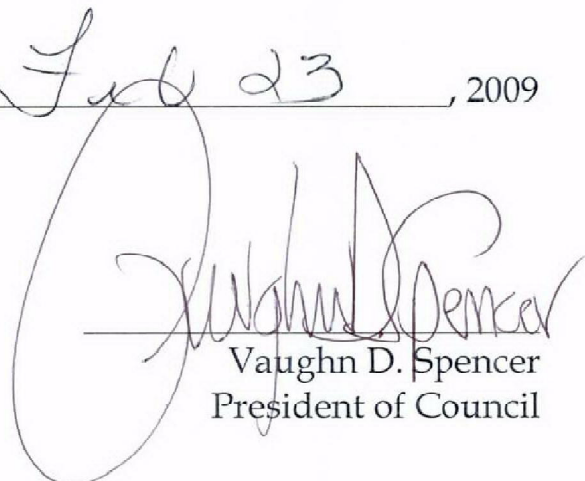 Feb 23, 2009
Vaughn D Spencer
Vaughn D. Spencer
President of Council